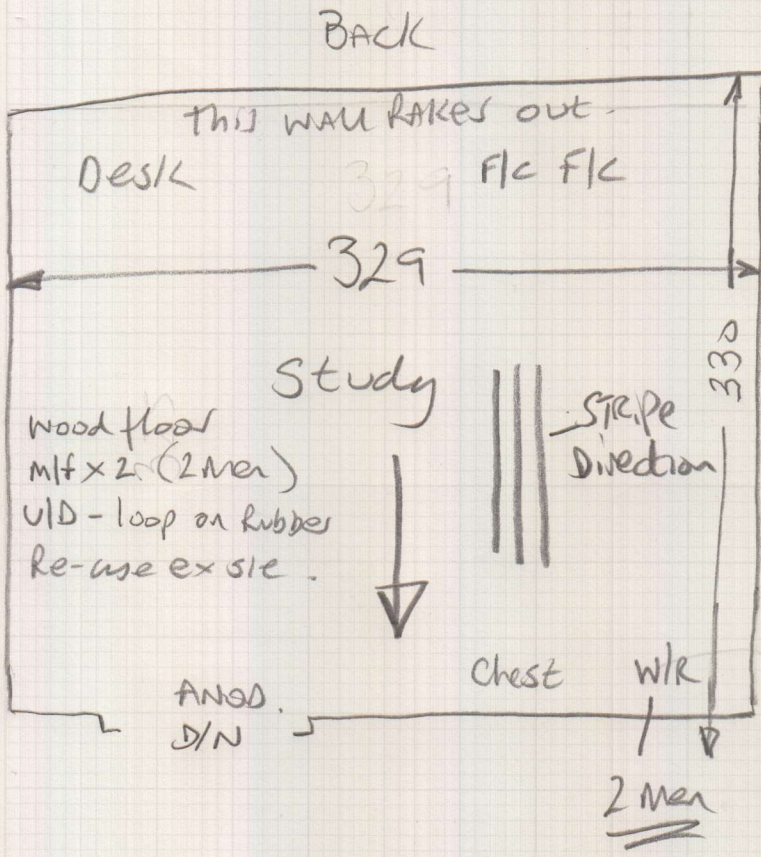 BACK
This WALL RAKES out.
Desk
F/C F/C
329
329
330
Study
STRIPE
Direction
wood floor
M/F x 2 (2 Men)
U/D - loop on Rubber
Re-use ex s/e.
Chest
W/R
ANOD.
D/N
2 Men